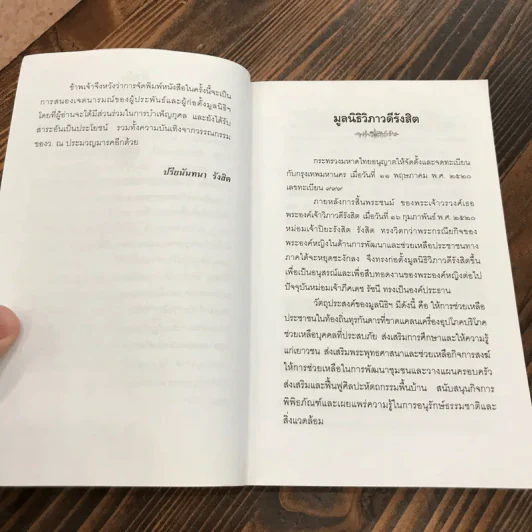 ข้าพเจ้าจึงหวังว่าการจัดพิมพ์หนังสือในครั้งนี้จะเป็น
การสนองเจตนารมณ์ของผู้ประพันธ์และผู้ก่อตั้งมูลนิธิฯ
โดยที่ผู้อ่านจะได้มีส่วนร่วมในการบำเพ็ญกุศล และยังได้รับ
สาระอันเป็นประโยชน์ รวมทั้งความบันเทิงจากวรรณกรรม
ของว. ณ ประมวญมารคอีกด้วย
ปรียนันทนา รังสิต
มูลนิธิวิภาวดีรังสิต
กระทรวงมหาดไทยอนุญาตให้จัดตั้งและจดทะเบียน
กับกรุงเทพมหานคร เมื่อวันที่ ๑๑ พฤษภาคม พ.ศ. ๒๕๒๐
เลขทะเบียน ๙๙๙
ภายหลังการสิ้นพระชนม์ ของพระเจ้าวรวงศ์เธอ
พระองค์เจ้าวิภาวดีรังสิต เมื่อวันที่ ๑๖ กุมภาพันธ์ พ.ศ. ๒๕๒๐
หม่อมเจ้าปิยะรังสิต รังสิต ทรงวิตกว่าพระกรณียกิจของ
พระองค์หญิงในด้านการพัฒนาและช่วยเหลือประชาชนทาง
ภาคใต้จะหยุดชะงักลง จึงทรงก่อตั้งมูลนิธิวิภาวดีรังสิตขึ้น
เพื่อเป็นอนุสรณ์และเพื่อสืบทอดงานของพระองค์หญิงต่อไป
ปัจจุบันหม่อมเจ้าภีศเดช รัชนี ทรงเป็นองค์ประธาน
วัตถุประสงค์ของมูลนิธิฯ มีดังนี้ คือ ให้การช่วยเหลือ
ประชาชนในท้องถิ่นทุรกันดารที่ขาดแคลนเครื่องอุปโภคบริโภค
ช่วยเหลือบุคคลที่ประสบภัย ส่งเสริมการศึกษาและให้ความรู้
แก่เยาวชน ส่งเสริมพระพุทธศาสนาและช่วยเหลือกิจการสงฆ์
ให้การช่วยเหลือในการพัฒนาชุมชนและวางแผนครอบครัว
ส่งเสริมและฟื้นฟูศิลปะหัตถกรรมพื้นบ้าน สนับสนุนกิจการ
พิพิธภัณฑ์และเผยแพร่ความรู้ในการอนุรักษ์ธรรมชาติและ
สิ่งแวดล้อม